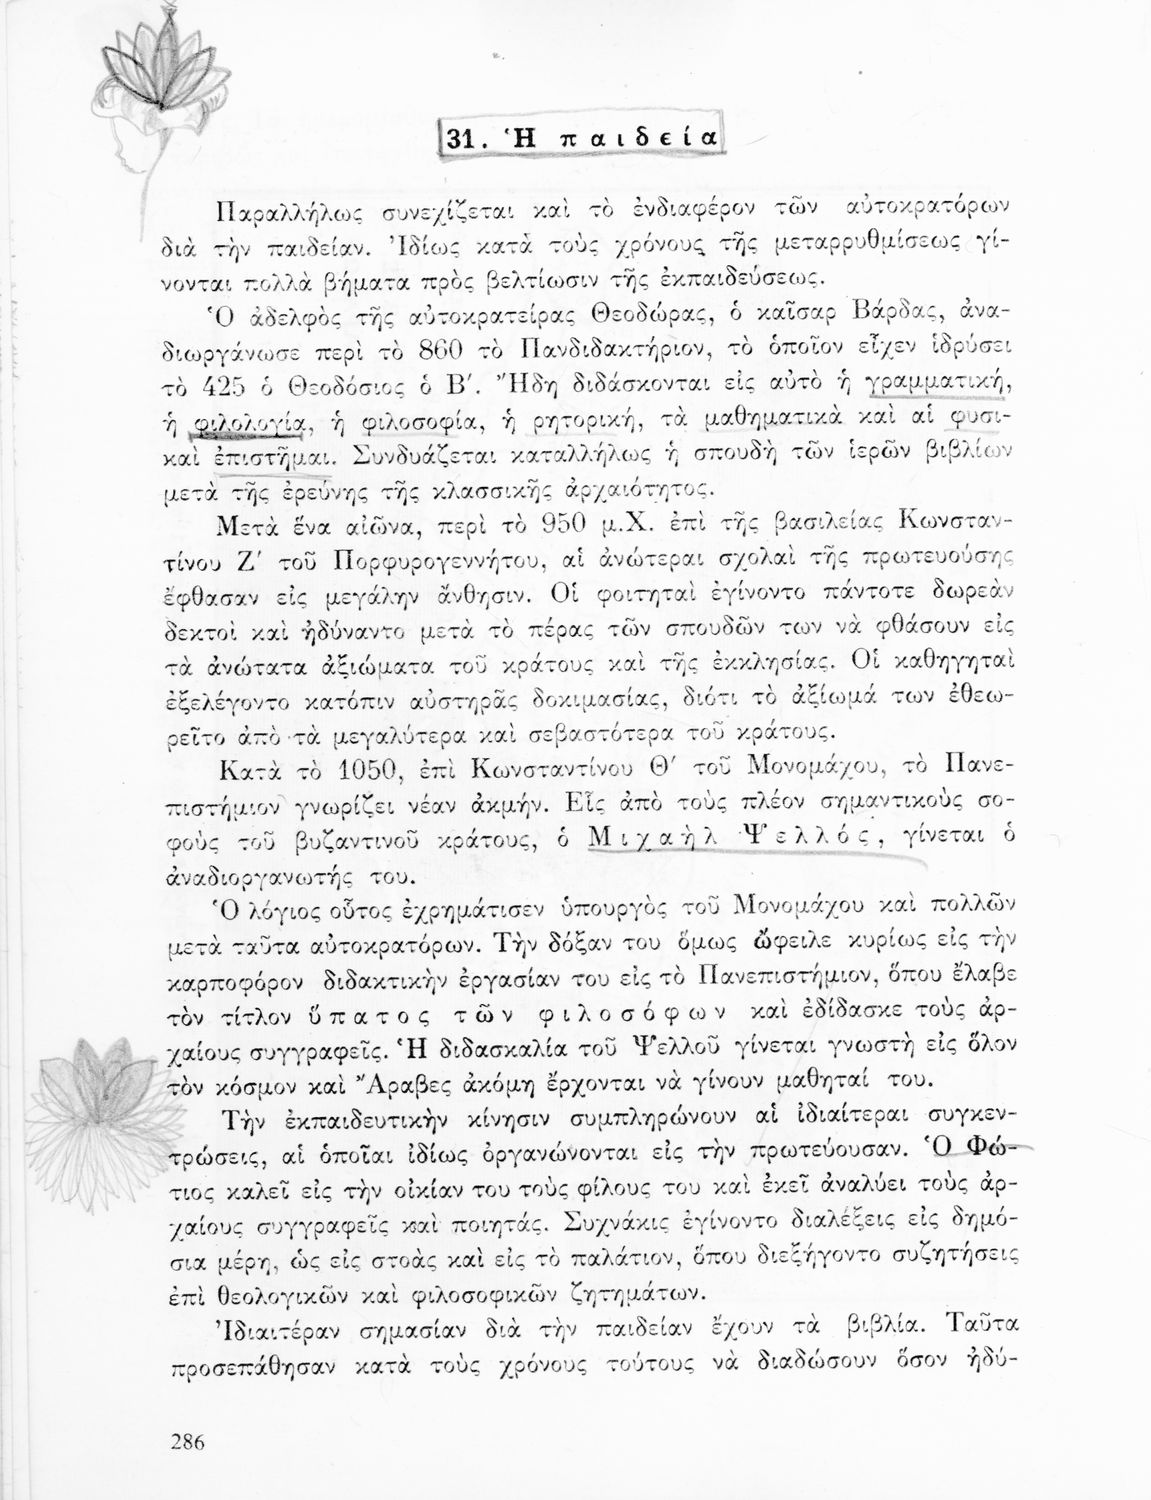 31. Ἡ παιδεία
Παραλλήλως συνεχίζεται καὶ τὸ ἐνδιαφέρον τῶν αὐτοκρατόρων
διὰ τὴν παιδείαν. Ἰδίως κατὰ τοὺς χρόνους τῆς μεταρρυθμίσεως γί-
νονται πολλὰ βήματα πρὸς βελτίωσιν τῆς ἐκπαιδεύσεως.
Ὁ ἀδελφὸς τῆς αὐτοκρατείρας Θεοδώρας, ὁ καῖσαρ Βάρδας, ἀνα-
διωργάνωσε περὶ τὸ 860 τὸ Πανδιδακτήριον, τὸ ὁποῖον εἶχεν ἱδρύσει
τὸ 425 ὁ Θεοδόσιος ὁ Β΄. Ἤδη διδάσκονται εἰς αὐτὸ ἡ γραμματική,
ἡ φιλολογία, ἡ φιλοσοφία, ἡ ρητορική, τὰ μαθηματικὰ καὶ αἱ φυσι-
καὶ ἐπιστῆμαι. Συνδυάζεται καταλλήλως ἡ σπουδὴ τῶν ἱερῶν βιβλίων
μετὰ τῆς ἐρεύνης τῆς κλασσικῆς ἀρχαιότητος.
Μετὰ ἕνα αἰῶνα, περὶ τὸ 950 μ.Χ. ἐπὶ τῆς βασιλείας Κωνσταν-
τίνου Ζ΄ τοῦ Πορφυρογεννήτου, αἱ ἀνώτεραι σχολαὶ τῆς πρωτευούσης
ἔφθασαν εἰς μεγάλην ἄνθησιν. Οἱ φοιτηταὶ ἐγίνοντο πάντοτε δωρεὰν
δεκτοὶ καὶ ἠδύναντο μετὰ τὸ πέρας τῶν σπουδῶν των νὰ φθάσουν εἰς
τὰ ἀνώτατα ἀξιώματα τοῦ κράτους καὶ τῆς ἐκκλησίας. Οἱ καθηγηταὶ
ἐξελέγοντο κατόπιν αὐστηρᾶς δοκιμασίας, διότι τὸ ἀξίωμά των ἐθεω-
ρεῖτο ἀπὸ τὰ μεγαλύτερα καὶ σεβαστότερα τοῦ κράτους.
Κατὰ τὸ 1050, ἐπὶ Κωνσταντίνου Θ΄ τοῦ Μονομάχου, τὸ Πανε-
πιστήμιον γνωρίζει νέαν ἀκμήν. Εἷς ἀπὸ τοὺς πλέον σημαντικοὺς σο-
φοὺς τοῦ βυζαντινοῦ κράτους, ὁ Μιχαὴλ Ψελλός, γίνεται ὁ
ἀναδιοργανωτής του.
Ὁ λόγιος οὗτος ἐχρημάτισεν ὑπουργὸς τοῦ Μονομάχου καὶ πολλῶν
μετὰ ταῦτα αὐτοκρατόρων. Τὴν δόξαν του ὅμως ὤφειλε κυρίως εἰς τὴν
καρποφόρον διδακτικὴν ἐργασίαν του εἰς τὸ Πανεπιστήμιον, ὅπου ἔλαβε
τὸν τίτλον ὕπατος τῶν φιλοσόφων καὶ ἐδίδασκε τοὺς ἀρ-
χαίους συγγραφεῖς. Ἡ διδασκαλία τοῦ Ψελλοῦ γίνεται γνωστὴ εἰς ὅλον
τὸν κόσμον καὶ Ἄραβες ἀκόμη ἔρχονται νὰ γίνουν μαθηταί του.
Τὴν ἐκπαιδευτικὴν κίνησιν συμπληρώνουν αἱ ἰδιαίτεραι συγκεν-
τρώσεις, αἱ ὁποῖαι ἰδίως ὀργανώνονται εἰς τὴν πρωτεύουσαν. Ὁ Φώ-
τιος καλεῖ εἰς τὴν οἰκίαν του τοὺς φίλους του καὶ ἐκεῖ ἀναλύει τοὺς ἀρ-
χαίους συγγραφεῖς καὶ ποιητάς. Συχνάκις ἐγίνοντο διαλέξεις εἰς δημό-
σια μέρη, ὡς εἰς στοὰς καὶ εἰς τὸ παλάτιον, ὅπου διεξήγοντο συζητήσεις
ἐπὶ θεολογικῶν καὶ φιλοσοφικῶν ζητημάτων.
Ἰδιαιτέραν σημασίαν διὰ τὴν παιδείαν ἔχουν τὰ βιβλία. Ταῦτα
προσεπάθησαν κατὰ τοὺς χρόνους τούτους νὰ διαδώσουν ὅσον ἠδύ-
286